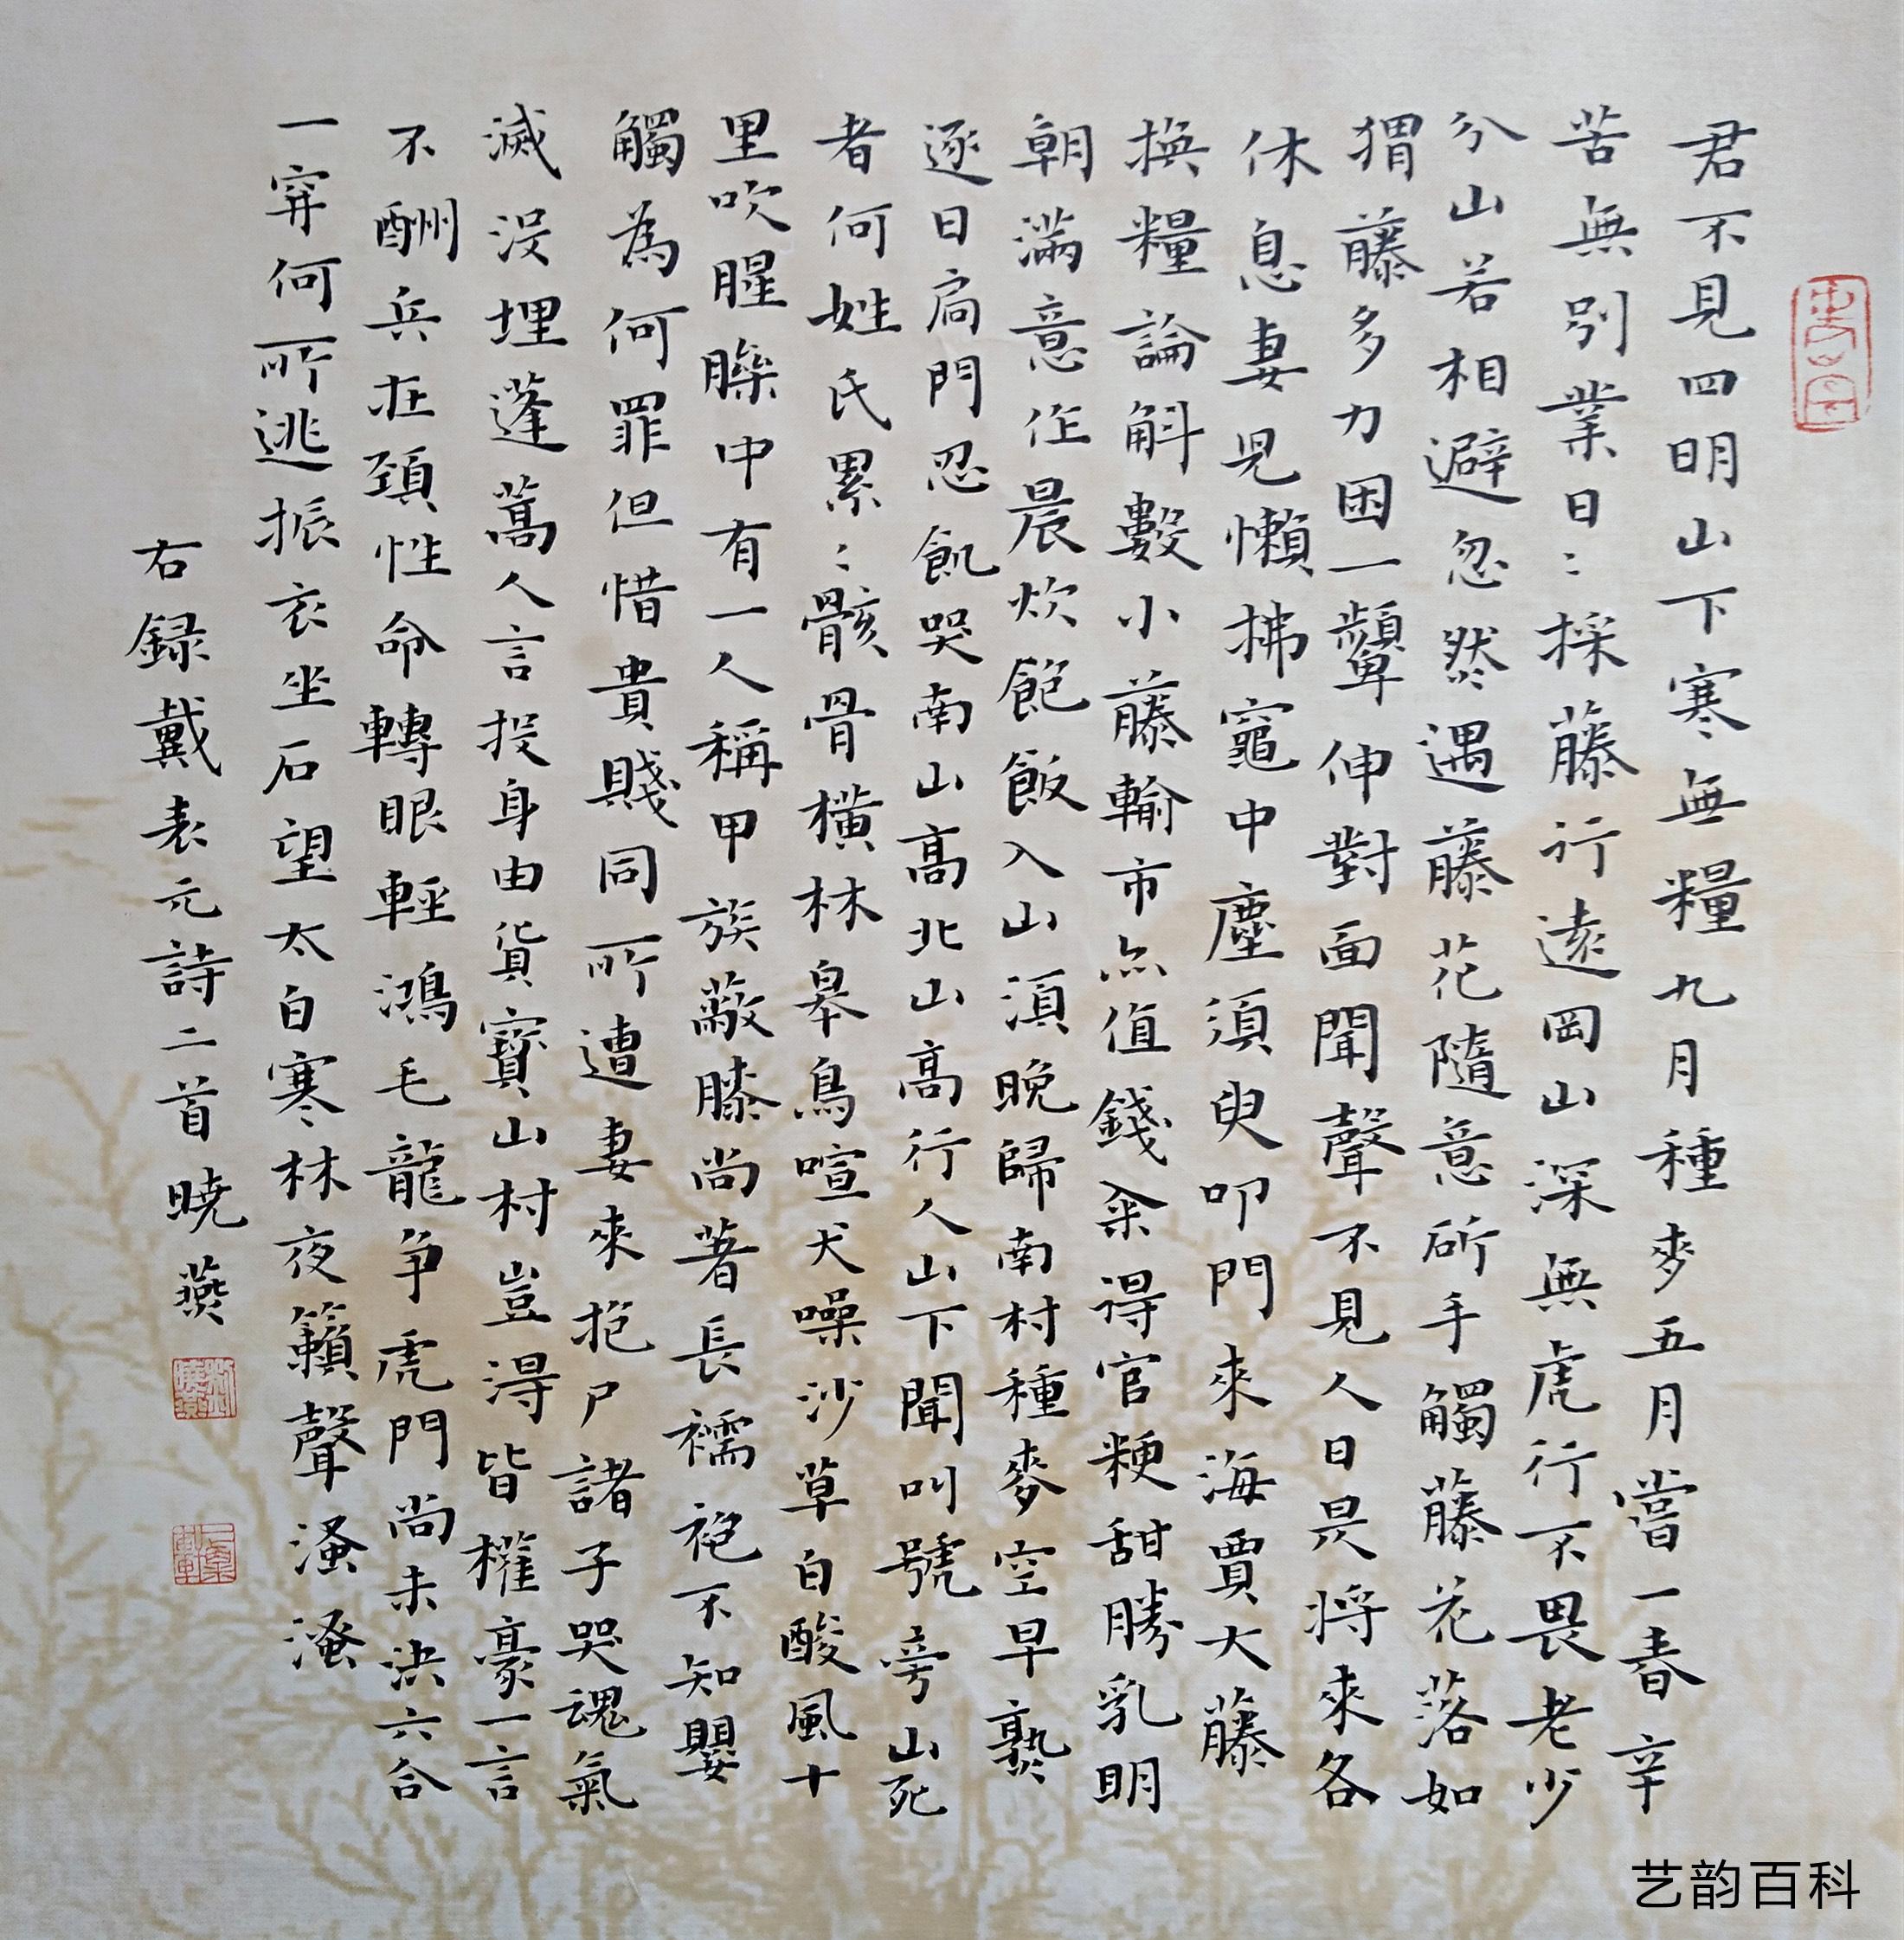 君不見四明山下寒無糧九月種麥五月嘗一春辛
苦無別業日〻採藤行遠岡山深無虎行不畏老少
分山若相避忽然遇藤花隨意斫手觸藤花落如
猬藤多力困一顰伸對面聞聲不見人日昃將來各
休息妻兒懶拂竈中塵須臾叩門來海賈大藤
換糧論斛數小藤輸市亦值錢糴得官粳甜勝乳明
朝滿意作晨炊飽飯入山須晚歸南村種麥空早熟
逐日扃門忍飢哭南山高北山高行人山下聞叫號旁山死
者何姓氏累〻骸骨橫林皋鳥喧犬噪沙草白酸風十
里吹腥臊中有一人稱甲族蔽膝尚著長襦袍不知嬰
觸為何罪但惜貴賤同所遭妻來抱尸諸子哭魂氣
滅沒埋蓬蒿人言投身由貨寶山村豈得皆權豪一言
不酬兵在頸性命轉眼輕鴻毛龍爭虎鬥尚未決六合
一穽何所逃振衣坐石望太白寒林夜籟聲溞溞
右録戴表元詩二首曉燕
艺韵百科